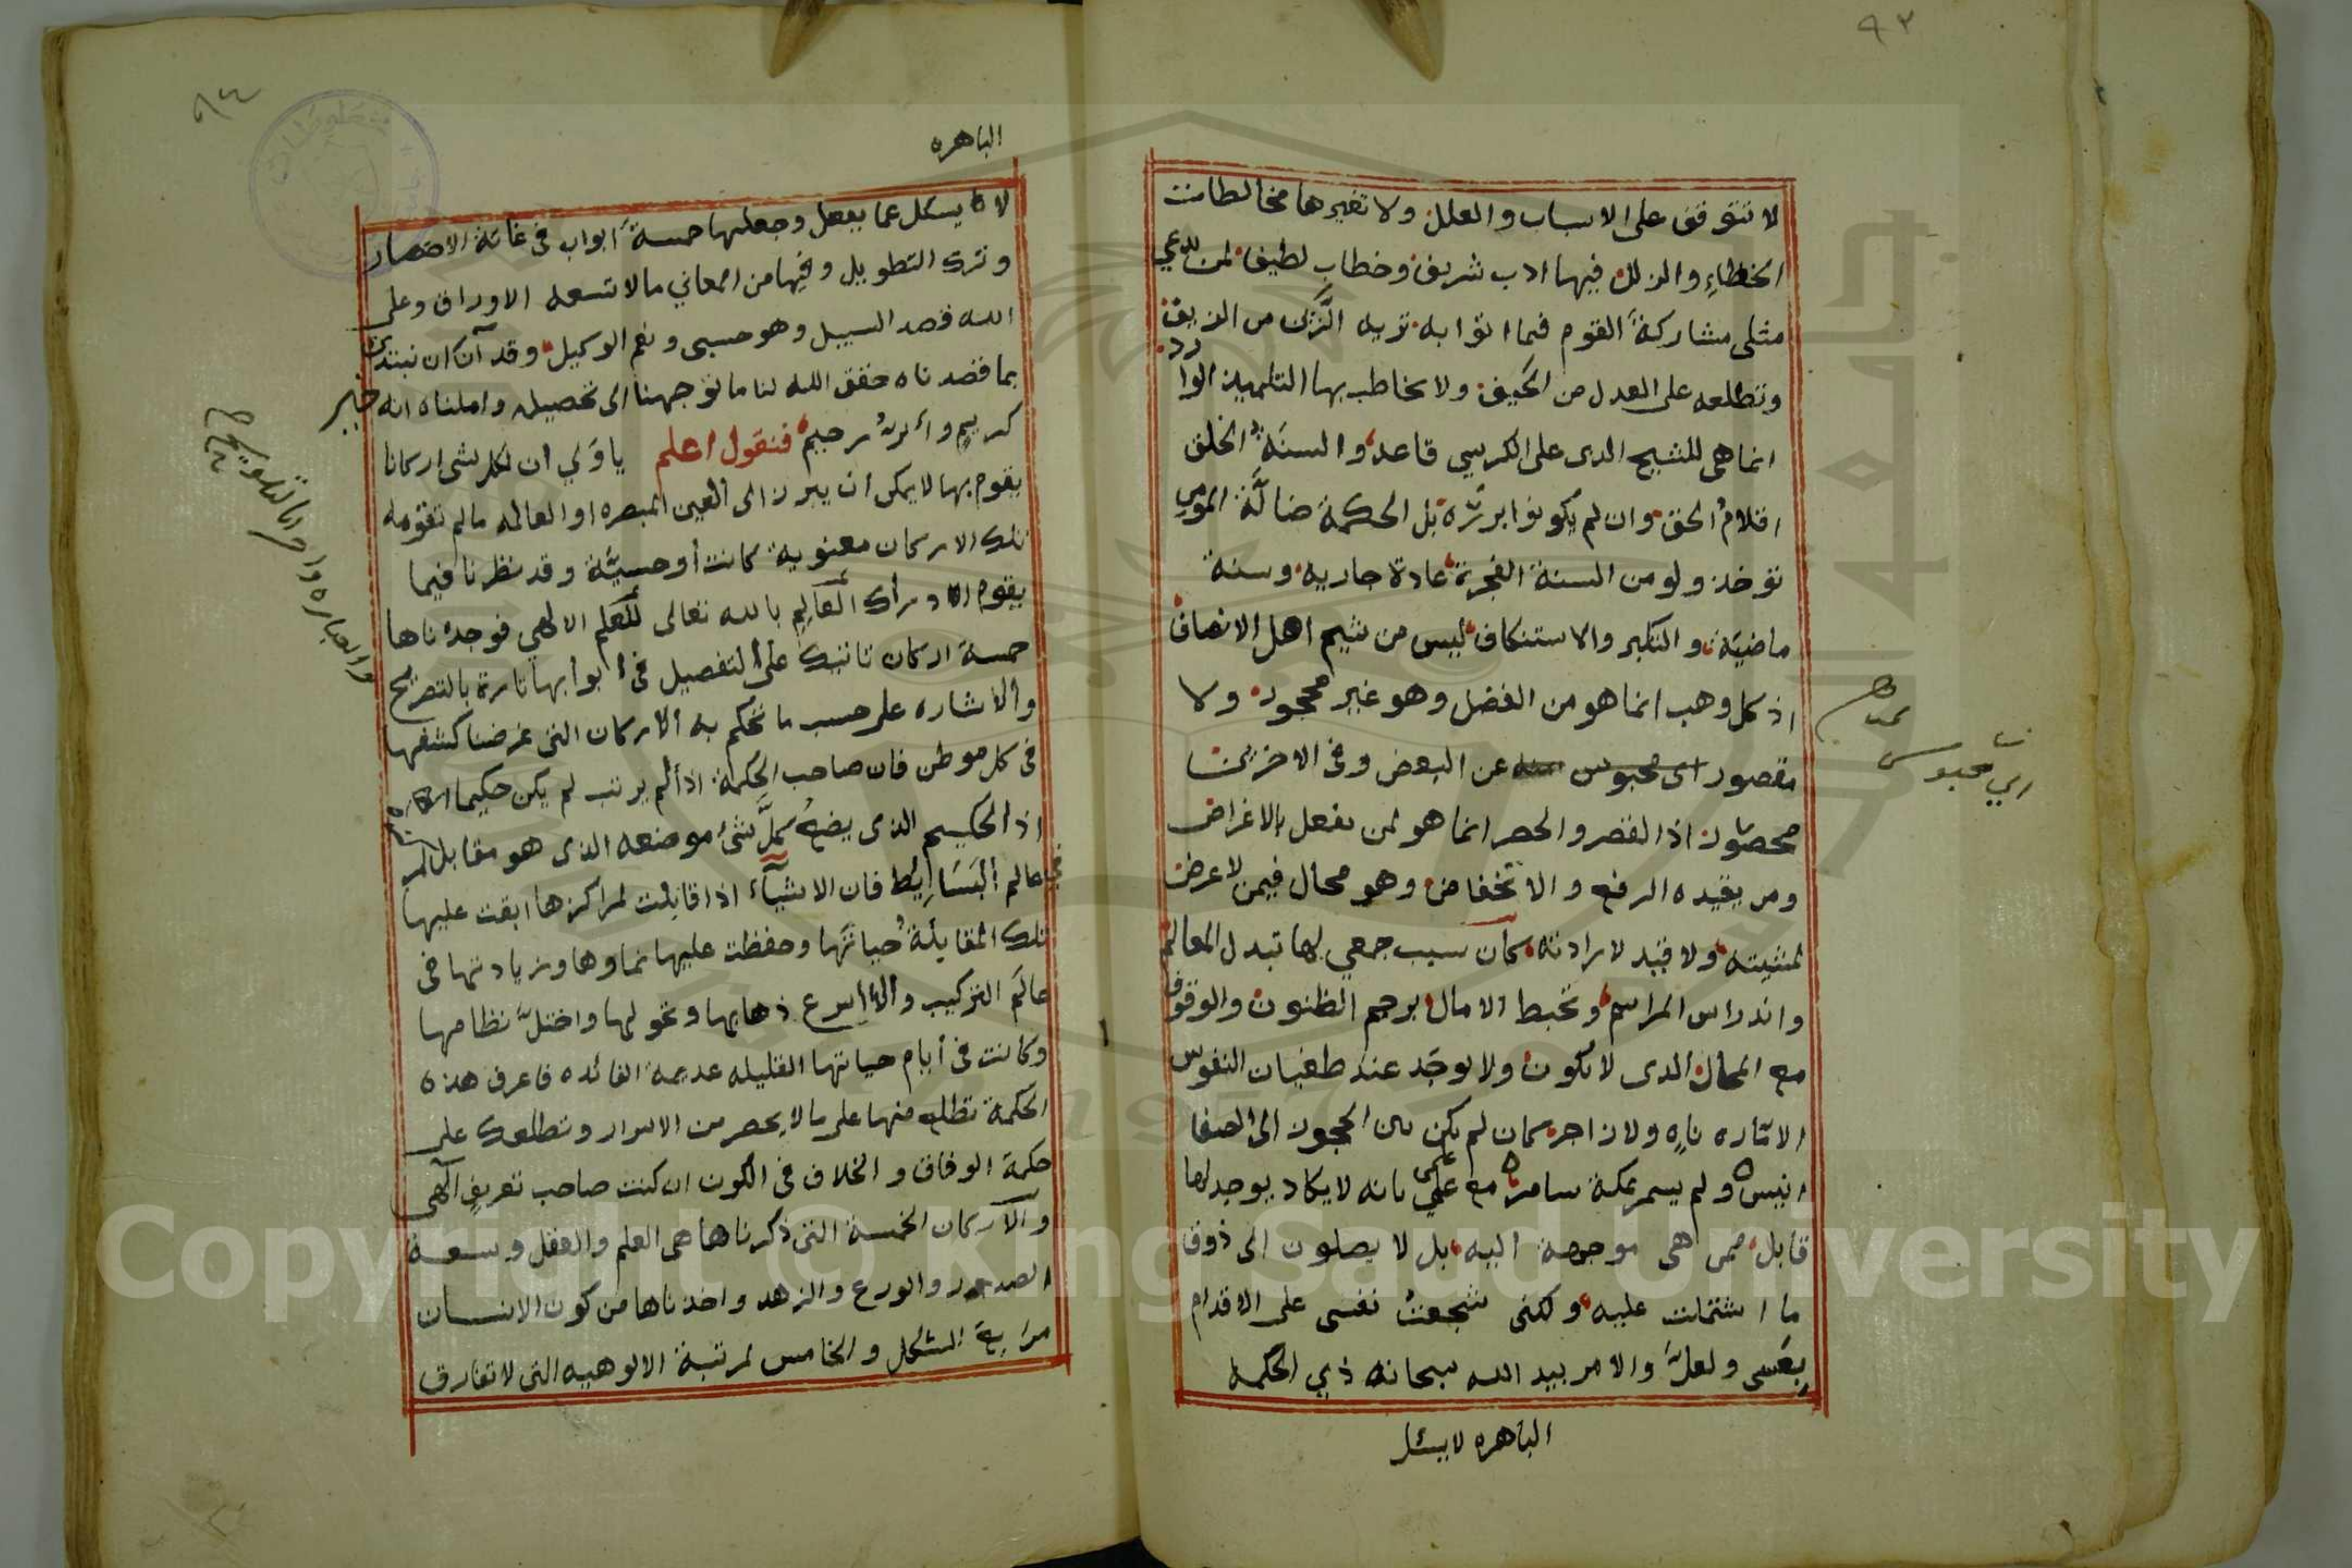 ٩٣
لا تتوقف على الاسباب والعلل ولا تغيرها مخالطات
الخطاء والزلل فيها ادب شريف وخطاب لطيف لمن يدعي
مثلي مشاركة القوم فيما اتوا به تريه الزين من الزيف
وتطلعه على العدل من الحيف ولا يخاطب بها التلميذ الوارد
انما هي للشيخ الذى على الكرسي قاعد والسنة الخلق
اقلام الحق وان لم يكونوا بررة بل الحكمة ضالة المومن
توخذ ولو من السنة الفجرة عادة جاريه وسنة
ماضية والتكبر والاستنكاف ليس من شيم اهل الانصاف
اذ كل وهب انما هو من الفضل وهو غير محجور ولا
مقصور اى محبوس عن البعض وفى الاخرين
محصور اذ القصر والحصر انما هو لمن يفعل بالاغراض
ومن يقيده الرفع والانخفاض وهو محال فيمن لا عرض
لمشيته ولا قيد لارادته كان سبب جمعي لها تبدل المعالم
واندراس المراسم وتخبط الامال برجم الظنون والوقوف
مع المحال الذى لا يكون ولا يوجد عند طغيان النفوس
الاماره ناه ولا زاجر كان لم يكن بين الحجون الى الصفا
انيس ولم يسمر بمكة سامر مع علمي بانه لا يكاد يوجد لها
قابل ممن هى موجهة اليه بل لا يصلون الى ذوق
ما اشتملت عليه ولكنى شجعت نفسى على الاقدام
بعسى ولعل والامر بيد الله سبحانه ذي الحكمه
الباهره لا يسئل
اي محبوس
٩٤
الباهره
لا يسئل عما يفعل وجعلتها خمسة ابواب فى غاية الاختصار
وترك التطويل وفيها من المعاني ما لا تسعه الاوراق وعلى
الله قصد السبيل وهو حسبى ونعم الوكيل وقد آن ان نبتدئ
بما قصدناه حقق الله لنا ما توجهنا الى تحصيله واملناه انه خير
كريم وأبر رحيم فنقول اعلم يا ولي ان لكل شى اركانا
يقوم بها لا يمكن ان يبرز الى العين المبصره او العالمه ما لم تقومه
تلك الاركان معنوية كانت أو حسية وقد نظرنا فيما
يقوم الادراك العالم بالله تعالى للعلم الالهي فوجدناها
خمسة اركان تاتيك على التفصيل فى أبوابها تارة بالتصريح
والاشاره على حسب ما تحكم به الاركان التى غرضنا كشفها
فى كل موطن فان صاحب الحكمة اذا لم يرتب لم يكن حكيما
اذ الحكيم الذى يضع كل شئ موضعه الذى هو مقابل لمر
فى عالم البسايط فان الاشياء اذا قابلت لمراكزها ابقت عليها
تلك المقابلة حياتها وحفظت عليها نماوها وزيادتها فى
عالم التركيب والا اسرع ذهابها وتحولها واختل نظامها
وكانت فى أيام حياتها القليله عديمة الفائده فاعرف هذه
الحكمة تطلع منها على ما لا يحصر من الاسرار وتطلعك على
حكمة الوفاق والخلاف فى الكون ان كنت صاحب تعريف آلهى
والاركان الخمسة التى ذكرناها هى العلم والعقل وسعة
الصدور والورع والزهد واخذناها من كون الانسان
مربع الشكل والخامس لمرتبة الالوهيه التى لا تفارق
والعباره واخرى بالتلويح
Copyright © King Saud University